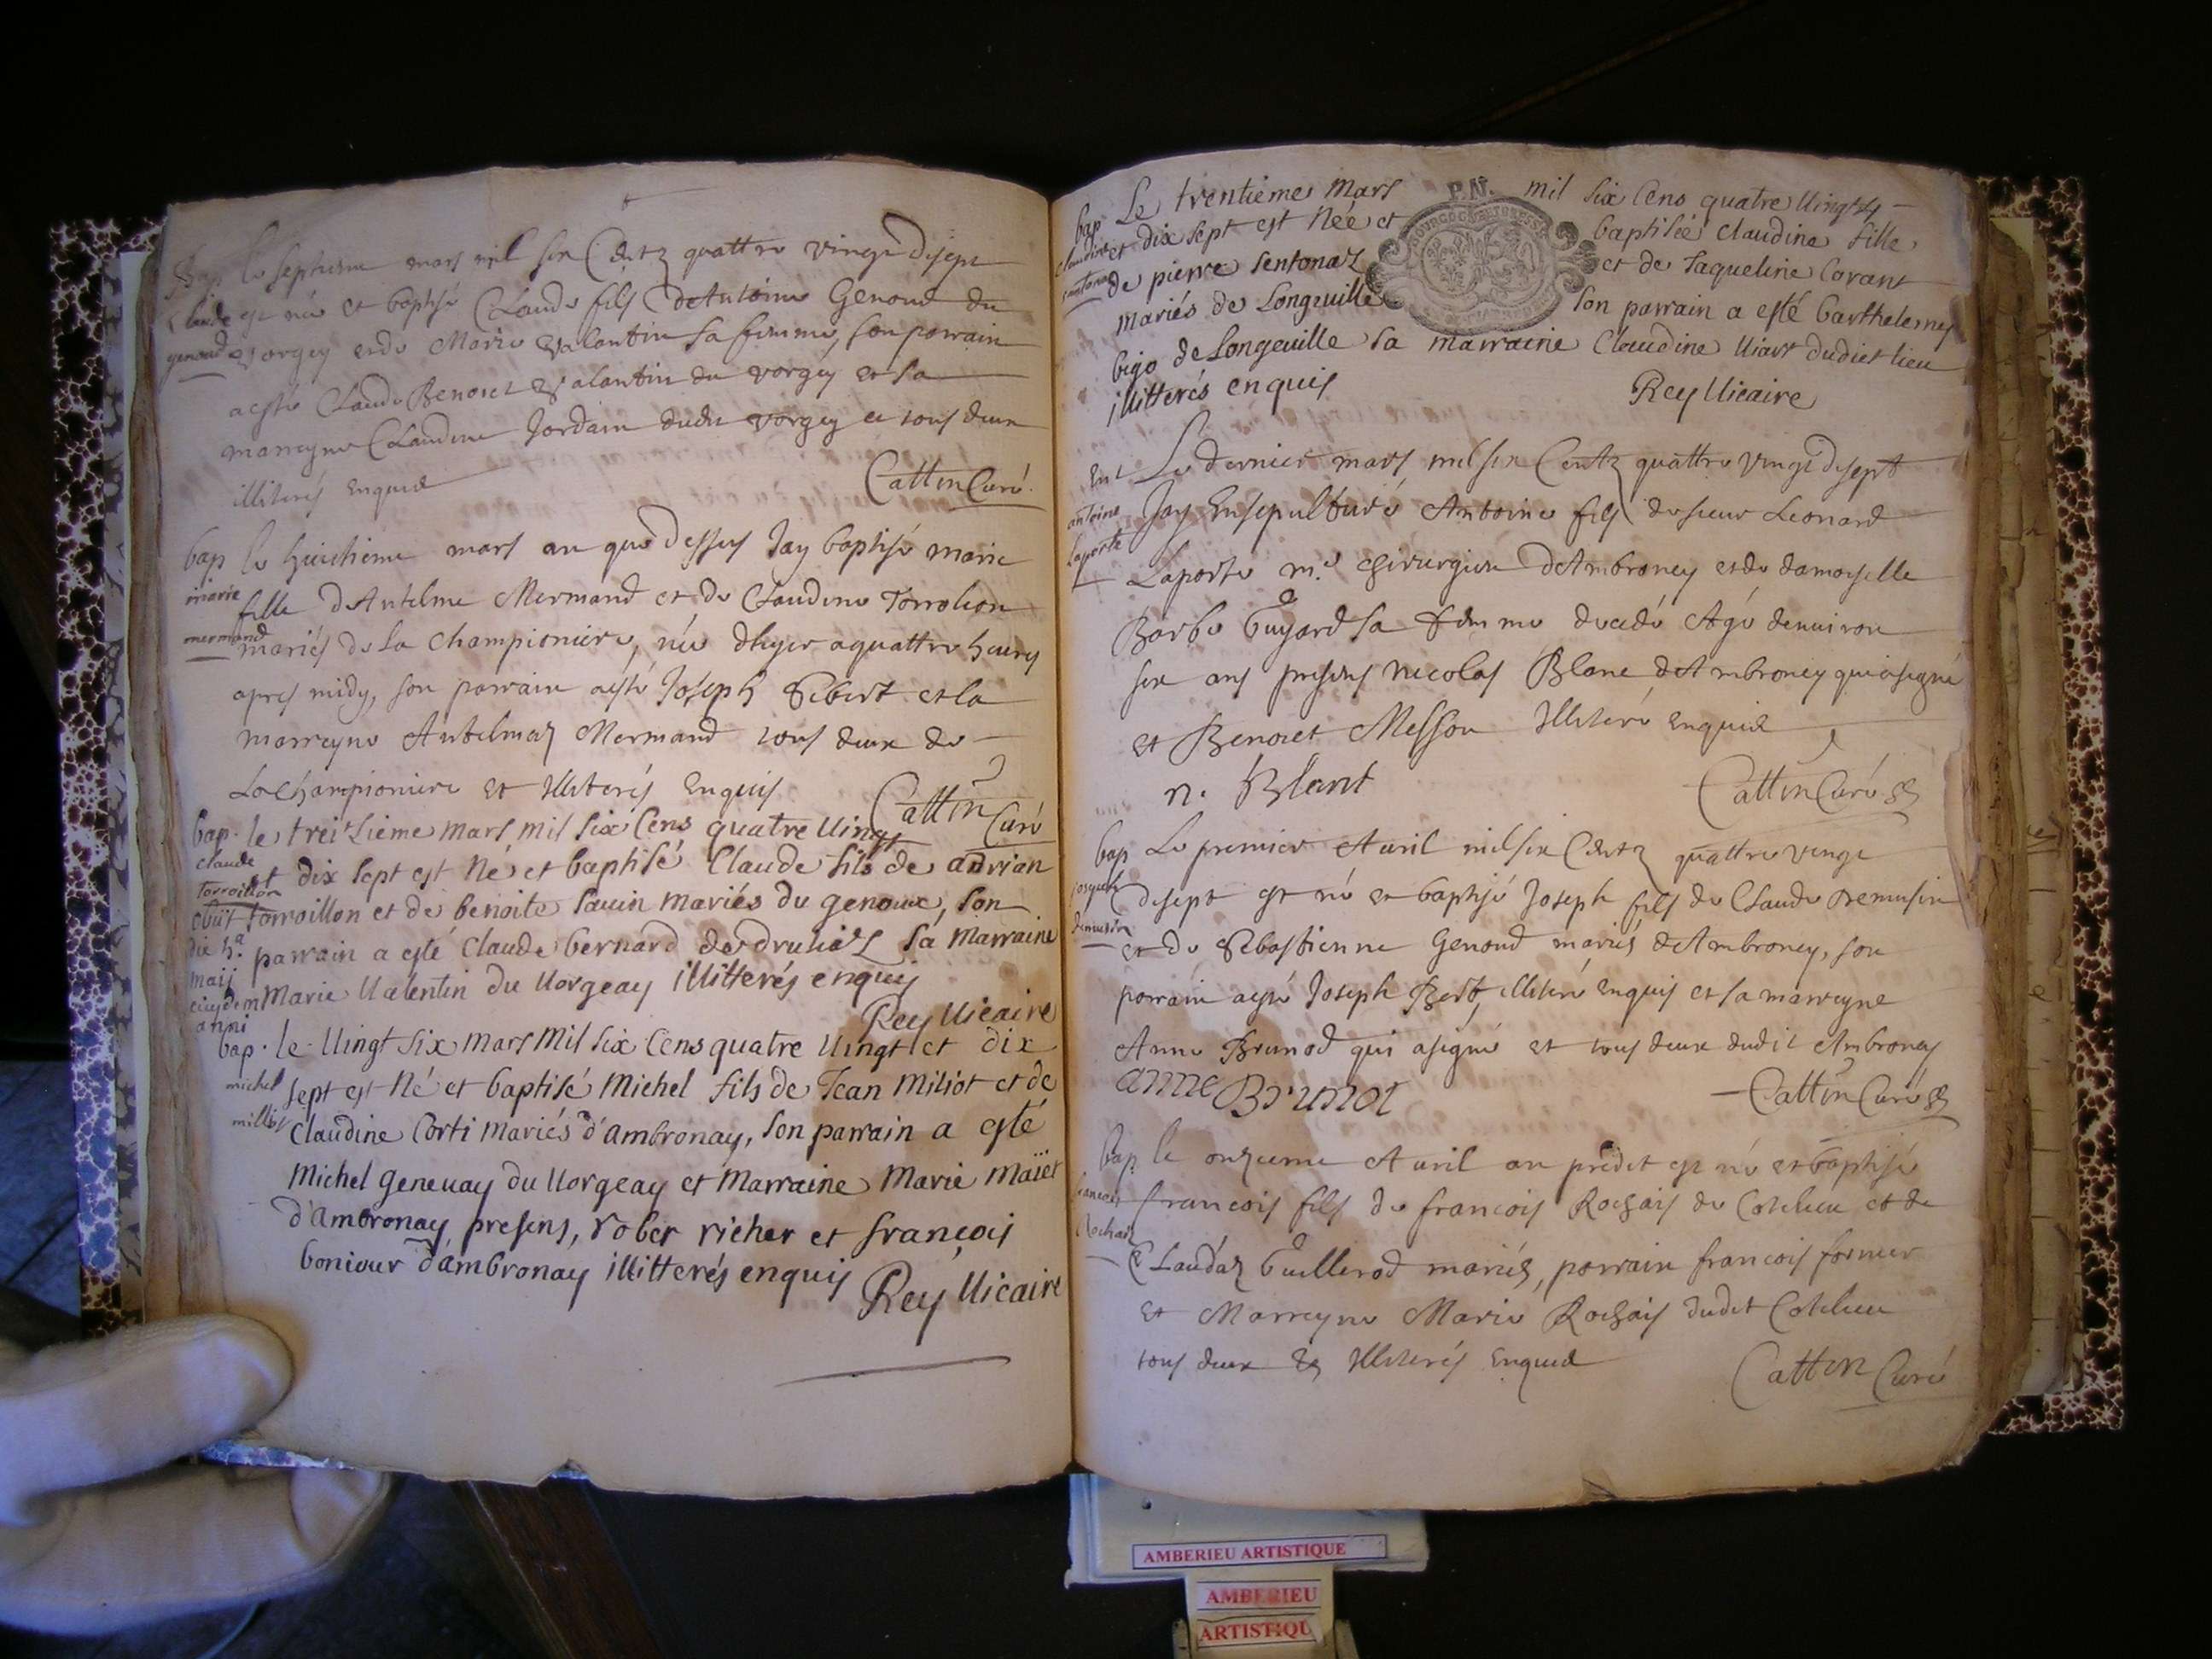 Bap le septieme mars mil six Centz quattre vingt disept
Claude est né et baptisé Claude fils d'Antoine Genoud du
genoud vorgey et de Marie Valantin sa femme, son parrain
a esté Claude Benoict Valantin du vorgey et sa
marreyne Claudine Jordain dudit vorgey et tous deux
illiterés enquis
Cattin Curé
bap le huictieme mars an que dessus Jay baptisé marie
marie fille d'Antelme Mermand et de Claudine
mermand mariés de la Championiere, née d'hyer a quattre heures
apres midy, son parrain a esté Joseph Sibert et la
marreyne Antelmaz Mermand tous deux de
La Championiere et Illiterés enquis
Cattin Curé
bap. le treizieme mars mil six cens quatre vingt
claude et dix sept est né et baptisé Claude fils de adrian
torroillon torroillon et de benoite Savin mariés du genoux, son
obiit
dix 7.a parrain a esté claude bernard des druliaz sa marraine
maij
eiusdem Marie Valentin du Vorgeay illitterés enquis
anni
Rey Vicaire
bap. le vingt six mars mil six cens quatre vingt et dix
michel sept est né et baptisé Michel fils de Jean Miliot et de
milliot Claudine Corti mariés d'ambronay, son parrain a esté
Michel genevay du Vorgeay et Marraine Marie Maiiet
d'ambronay presens, rober richer et françois
boniour d'ambronay illitterés enquis
Rey Vicaire
bap Le trentieme Mars mil six cens quatre vingts
claudine et dix sept est Née et baptisée Claudine fille
sentonaz de pierre sentonaz et de Jaqueline Corant
mariés de Longeuille son parrain a esté barthelemy
bigo de Longeuille sa marraine Claudine Viart dudict lieu
illitterés enquis
Rey Vicaire
P.N.
ent Le dernier mars mil six Centz quattre vingt disept
antoine Jay Ensepulturé Antoine fils de sieur Leonard
laporte Laporte m.e chirurgien d'Ambroney et de damoyselle
Barbe Guyard sa femme decedé Agé d'environ
six ans presens nicolas Blanc d'Ambroney qui a signé
et Benoict Messon Illiteré enquis
n. Blant
Cattin Curé
bap Le premier Avril mil six Centz quattre vingt
joseph disept est né et baptisé Joseph fils de Claude Demusin
demusin et de Sebastienne Genoud mariés d'Ambroney, son
parrain a esté Joseph illiteré enquis et sa marreyne
Anne Brunod qui a signé et tous deux dudit Ambronay
anne Brunot
Cattin Curé
bap le onzieme Avril an predit est né et baptisé
francois francois fils de francois Rochais de Cotelieu et de
Rochais Claudaz Guillerod mariés, parrain francois fornier
et Marreyne Marie Rochais dudit Cotelieu
tous deux Illiterés enquis
Cattin Curé
AMBERIEU ARTISTIQUE
AMBERIEU
ARTISTIQU